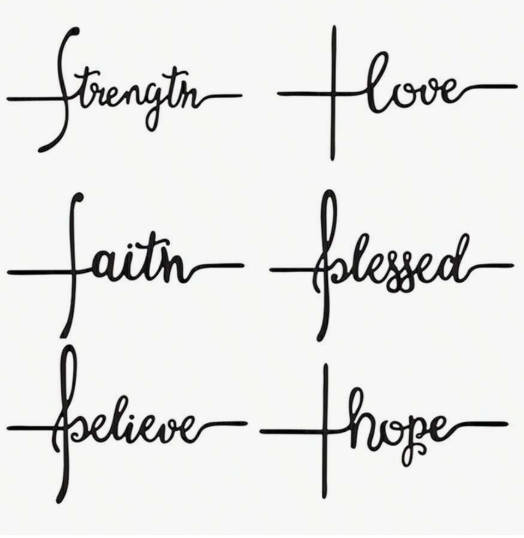 Strength love
faith blessed
believe hope